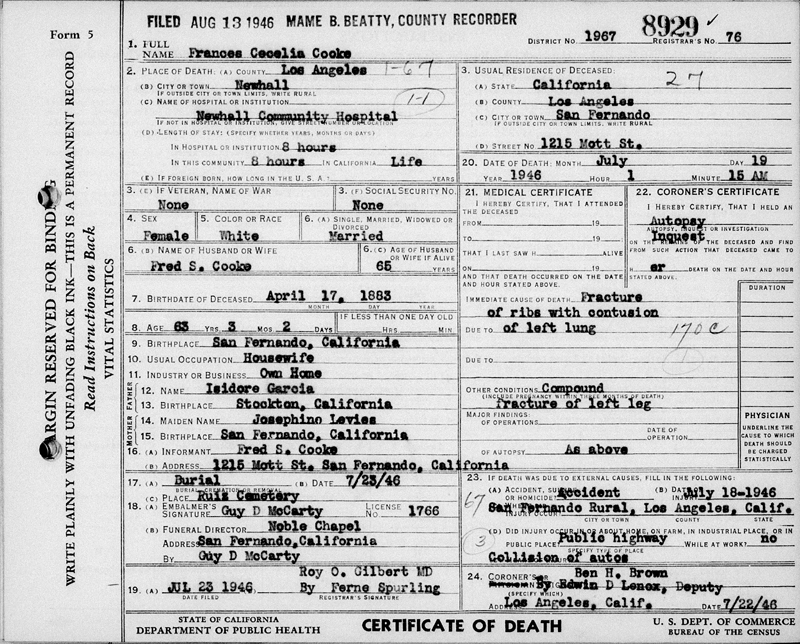 FILED AUG 13 1946 MAME B. BEATTY, COUNTY RECORDER
Form 5
DISTRICT NO. 1967 8929 ✓ REGISTRAR'S NO. 76
1. FULL NAME Frances Cecelia Cooke
2. PLACE OF DEATH: (A) COUNTY Los Angeles 1-67
(B) CITY OR TOWN Newhall
IF OUTSIDE CITY OR TOWN LIMITS, WRITE RURAL
(C) NAME OF HOSPITAL OR INSTITUTION 1-1
Newhall Community Hospital
IF NOT IN HOSPITAL OR INSTITUTION, GIVE STREET NUMBER OR LOCATION
(D) LENGTH OF STAY: (SPECIFY WHETHER YEARS, MONTHS OR DAYS)
IN HOSPITAL OR INSTITUTION 8 hours
IN THIS COMMUNITY 8 hours IN CALIFORNIA Life
(E) IF FOREIGN BORN, HOW LONG IN THE U. S. A.? YEARS
3. (E) IF VETERAN, NAME OF WAR None
3. (F) SOCIAL SECURITY NO. None
4. SEX Female
5. COLOR OR RACE White
6. (A) SINGLE, MARRIED, WIDOWED OR DIVORCED Married
6. (B) NAME OF HUSBAND OR WIFE Fred S. Cooke
6. (C) AGE OF HUSBAND OR WIFE IF ALIVE 65 YEARS
7. BIRTHDATE OF DECEASED April 17, 1883
MONTH DAY YEAR
8. AGE 63 YRS. 3 MOS 2 DAYS IF LESS THAN ONE DAY OLD HRS MIN.
9. BIRTHPLACE San Fernando, California
10. USUAL OCCUPATION Housewife
11. INDUSTRY OR BUSINESS Own Home
FATHER
12. NAME Isidore Garcia
13. BIRTHPLACE Stockton, California
MOTHER
14. MAIDEN NAME Josephine Levies
15. BIRTHPLACE San Fernando, California
16. (A) INFORMANT Fred S. Cooke
(B) ADDRESS 1215 Mott St. San Fernando, California
17. (A) Burial (B) DATE 7/23/46
BURIAL, CREMATION OR REMOVAL
(C) PLACE Ruiz Cemetery
18. (A) EMBALMER'S SIGNATURE Guy D McCarty LICENSE NO 1766
(B) FUNERAL DIRECTOR Noble Chapel
ADDRESS San Fernando, California
BY Guy D McCarty
Roy O. Gilbert MD
19. (A) JUL 23 1946 By Ferne Spurling
DATE FILED REGISTRAR'S SIGNATURE
3. USUAL RESIDENCE OF DECEASED: 27
(A) STATE California
(B) COUNTY Los Angeles
(C) CITY OR TOWN San Fernando
IF OUTSIDE CITY OR TOWN LIMITS, WRITE RURAL
(D) STREET NO 1215 Mott St.
20. DATE OF DEATH: MONTH July DAY 19
YEAR 1946 HOUR 1 MINUTE 15 AM
21. MEDICAL CERTIFICATE
I HEREBY CERTIFY, THAT I ATTENDED THE DECEASED
FROM 19
TO 19
THAT I LAST SAW H ALIVE
ON 19
AND THAT DEATH OCCURRED ON THE DATE AND HOUR STATED ABOVE.
22. CORONER'S CERTIFICATE
I HEREBY CERTIFY, THAT I HELD AN
Autopsy
AUTOPSY, INQUEST OR INVESTIGATION
Inquest
ON THE REMAINS OF THE DECEASED AND FIND FROM SUCH ACTION THAT DECEASED CAME TO
H er DEATH ON THE DATE AND HOUR STATED ABOVE.
DURATION
IMMEDIATE CAUSE OF DEATH Fracture
of ribs with contusion
DUE TO of left lung 170C
DUE TO 1
OTHER CONDITIONS Compound
(INCLUDE PREGNANCY WITHIN THREE MONTHS OF DEATH)
fracture of left leg
MAJOR FINDINGS:
OF OPERATIONS
DATE OF OPERATION
OF AUTOPSY As above
PHYSICIAN
UNDERLINE THE CAUSE TO WHICH DEATH SHOULD BE CHARGED STATISTICALLY
23. IF DEATH WAS DUE TO EXTERNAL CAUSES, FILL IN THE FOLLOWING:
(A) ACCIDENT, SUICIDE OR HOMICIDE? Accident (B) DATE OF INJURY July 18-1946
67 INJURY OCCUR? San Fernando Rural, Los Angeles, Calif.
CITY OR TOWN COUNTY STATE
(D) DID INJURY OCCUR IN OR ABOUT HOME, ON FARM, IN INDUSTRIAL PLACE, OR IN
3 PUBLIC PLACE? Public highway WHILE AT WORK? no
SPECIFY TYPE OF PLACE
Collision of autos
24. CORONER'S Ben H. Brown
By Edwin D Lenox, Deputy
(SPECIFY WHICH)
ADDRESS Los Angeles, Calif. DATE 7/22/46
MARGIN RESERVED FOR BINDING
WRITE PLAINLY WITH UNFADING BLACK INK—THIS IS A PERMANENT RECORD
Read Instructions on Back
VITAL STATISTICS
STATE OF CALIFORNIA
DEPARTMENT OF PUBLIC HEALTH
CERTIFICATE OF DEATH
U. S. DEPT. OF COMMERCE
BUREAU OF THE CENSUS